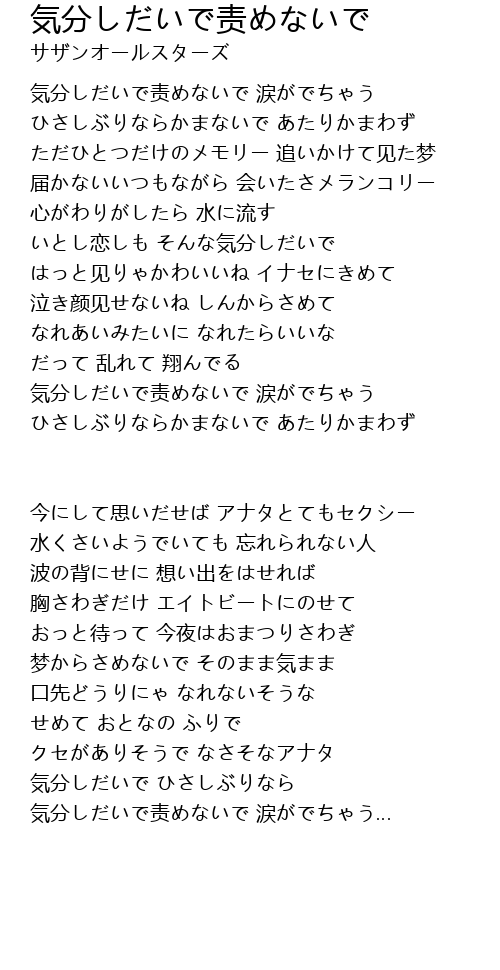 気分しだいで责めないで
サザンオールスターズ
気分しだいで责めないで 涙がでちゃう
ひさしぶりならかまないで あたりかまわず
ただひとつだけのメモリー 追いかけて见た梦
届かないいつもながら 会いたさメランコリー
心がわりがしたら 水に流す
いとし恋しも そんな気分しだいで
はっと见りゃかわいいね イナセにきめて
泣き颜见せないね しんからさめて
なれあいみたいに なれたらいいな
だって 乱れて 翔んでる
気分しだいで责めないで 涙がでちゃう
ひさしぶりならかまないで あたりかまわず
今にして思いだせば アナタとてもセクシー
水くさいようでいても 忘れられない人
波の背にせに 想い出をはせれば
胸さわぎだけ エイトビートにのせて
おっと待って 今夜はおまつりさわぎ
梦からさめないで そのまま気まま
口先どうりにゃ なれないそうな
せめて おとなの ふりで
クセがありそうで なさそなアナタ
気分しだいで ひさしぶりなら
気分しだいで责めないで 涙がでちゃう...